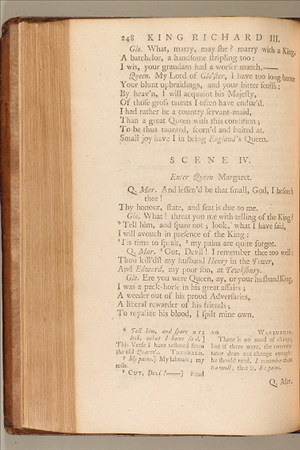 248 KING RICHARD III.
Glo. What, marry, may she? marry with a King,
A batchelor, a handsome stripling too:
I wis, your grandam had a worser match.—
Queen. My Lord of Glo'ster, I have too long born
Your blunt upbraidings, and your bitter scoffs:
By heav'n, I will acquaint his Majesty,
Of those gross taunts I often have endur'd.
I had rather be a country servant-maid,
Than a great Queen with this condition;
To be thus taunted, scorn'd and baited at.
Small joy have I in being England's Queen.
SCENE IV.
Enter Queen Margaret.
Q. Mar. And lessen'd be that small, God, I beseech
thee!
Thy honour, state, and seat is due to me.
Glo. What! threat you me with telling of the King?
⁶ Tell him, and spare not; look, what I have said,
I will avouch in presence of the King:
'Tis time to speak, ⁷ my pains are quite forgot.
Q. Mar. ⁸ Out, Devil! I remember them too well:
Thou kill'dst my husband Henry in the Tower,
And Edward, my poor son, at Tewksbury.
Glo. Ere you were Queen, ay, or your husband King,
I was a pack-horse in his great affairs;
A weeder out of his proud Adversaries,
A liberal rewarder of his friends;
To royalize his blood, I spilt mine own.
⁶ Tell him, and spare not;
look, what I have said,]
This Verse I have restored from
the old Quarto's. THEOBALD.
⁷ My pains.] My labours; my
toils.
⁸ OUT, Devil!——] Read
no. WARBURTON.
There is no need of change,
but if there were, the commen-
tator does not change enough:
he should read, I remember them
too well; that is, his pains.
Q. Mar.